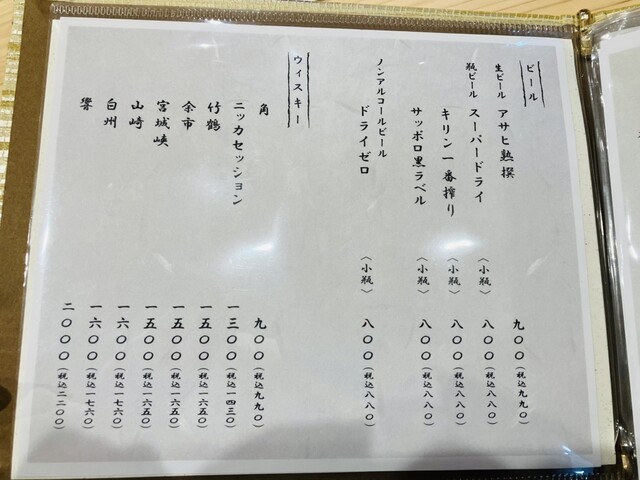 ビール
生ビール アサヒ熟撰 九〇〇(税込九九〇)
瓶ビール スーパードライ 〈小瓶〉 八〇〇(税込八八〇)
キリン一番搾り 〈小瓶〉 八〇〇(税込八八〇)
サッポロ黒ラベル 〈小瓶〉 八〇〇(税込八八〇)
ノンアルコールビール
ドライゼロ 〈小瓶〉 八〇〇(税込八八〇)
ウィスキー
角 九〇〇(税込九九〇)
ニッカセッション 一三〇〇(税込一四三〇)
竹鶴 一五〇〇(税込一六五〇)
余市 一五〇〇(税込一六五〇)
宮城峡 一五〇〇(税込一六五〇)
山崎 一六〇〇(税込一七六〇)
白州 一六〇〇(税込一七六〇)
響 二〇〇〇(税込二二〇〇)